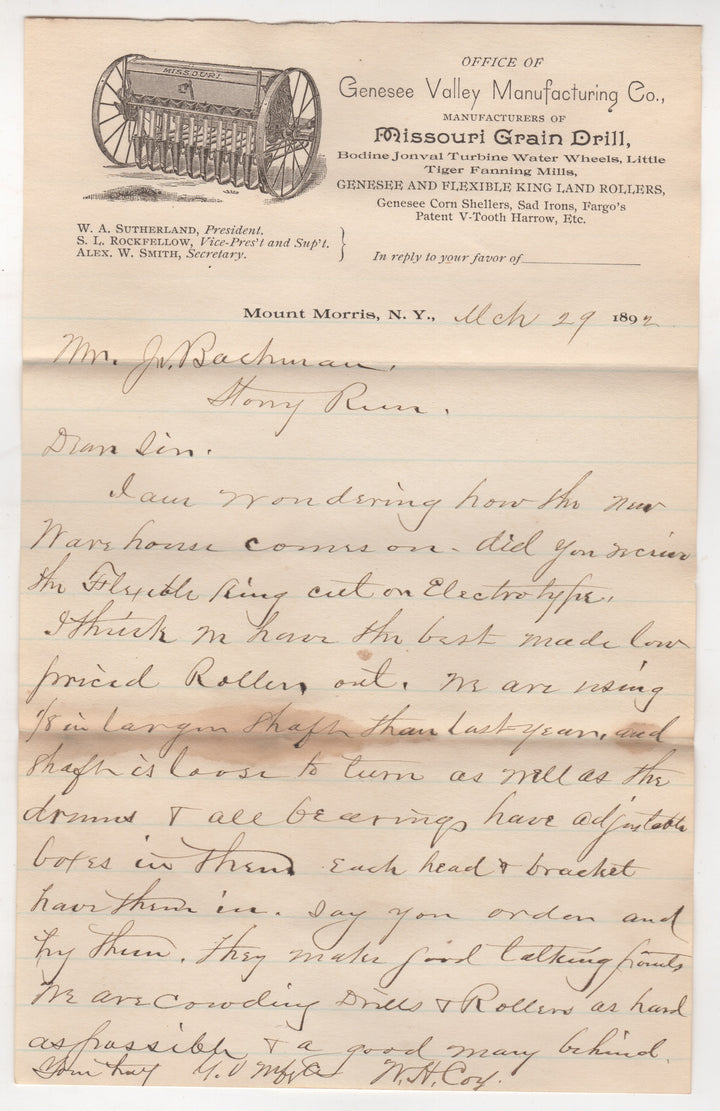 MISSOURI
OFFICE OF
Genesee Valley Manufacturing Co.,
MANUFACTURERS OF
Missouri Grain Drill,
Bodine Jonval Turbine Water Wheels, Little
Tiger Fanning Mills,
GENESEE AND FLEXIBLE KING LAND ROLLERS,
Genesee Corn Shellers, Sad Irons, Fargo's
Patent V-Tooth Harrow, Etc.
W. A. SUTHERLAND, President.
S. L. ROCKFELLOW, Vice-Pres't and Sup't.
ALEX. W. SMITH, Secretary.
In reply to your favor of
Mount Morris, N. Y., Mch 29 1892
Mr. Bachman,
Stony Run.
Dear Sir.
I am wondering how the new
Warehouse comes on. did you receive
the Flexible King cut on Electrotype.
I think we have the best made low
priced Rollers out. We are using
1/8 in larger shaft than last year, and
shaft is loose to turn as well as the
drums & all bearings have adjustable
boxes in them each head & bracket
have them in. Say you order and
try them. they make good talking points
We are crowding Drills & Rollers as hard
as possible & a good many behind.
Your truly G. V Mfg Co W. H. Coy.